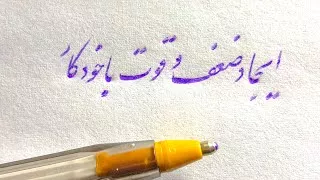 ایجاد ضعف و قوت با خودکار